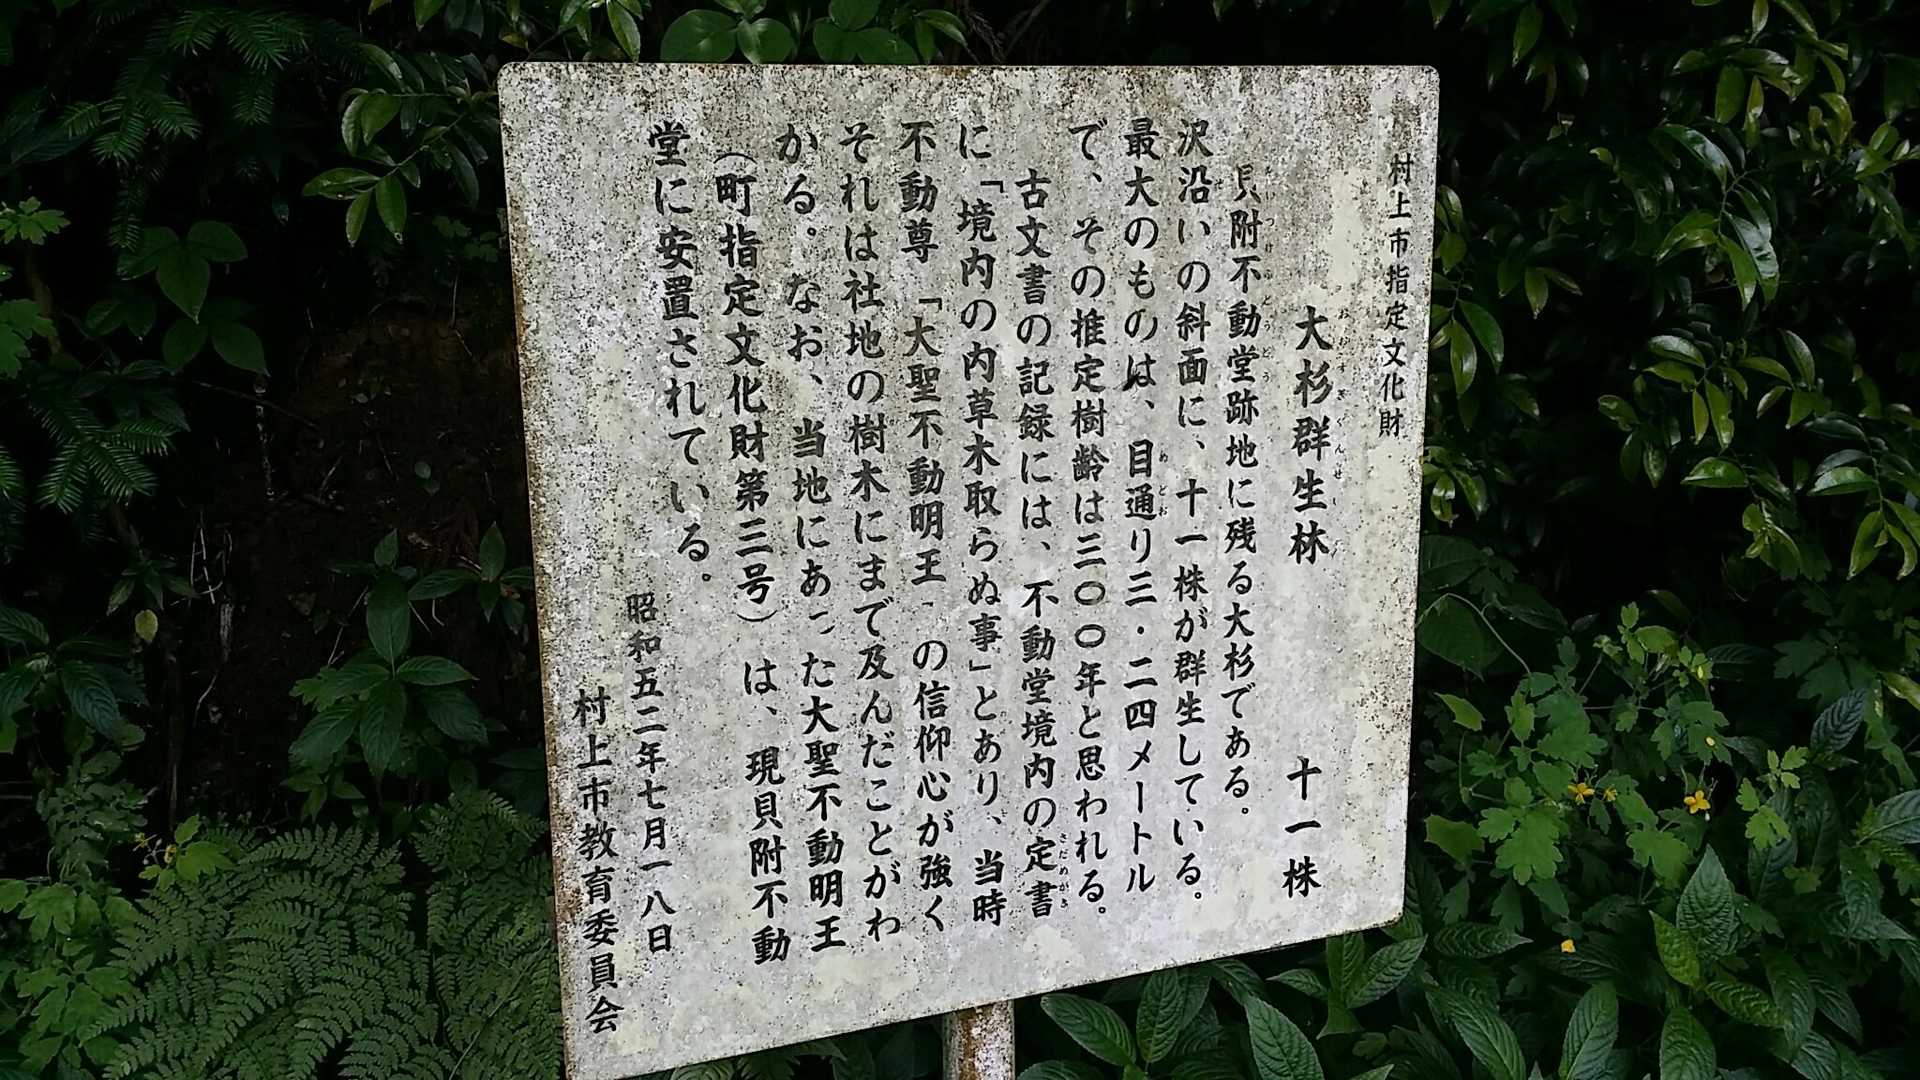 村上市指定文化財
大杉群生林　十一株
貝附不動堂跡地に残る大杉である。
沢沿いの斜面に、十一株が群生している。
最大のものは、目通り三・二四メートル
で、その推定樹齢は三〇〇年と思われる。
古文書の記録には、不動堂境内の定書
に「境内の内草木取らぬ事」とあり、当時
不動尊「大聖不動明王」の信仰心が強く
それは社地の樹木にまで及んだことがわ
かる。なお、当地にあった大聖不動明王
（町指定文化財第三号）は、現貝附不動
堂に安置されている。
昭和五二年七月一八日
村上市教育委員会